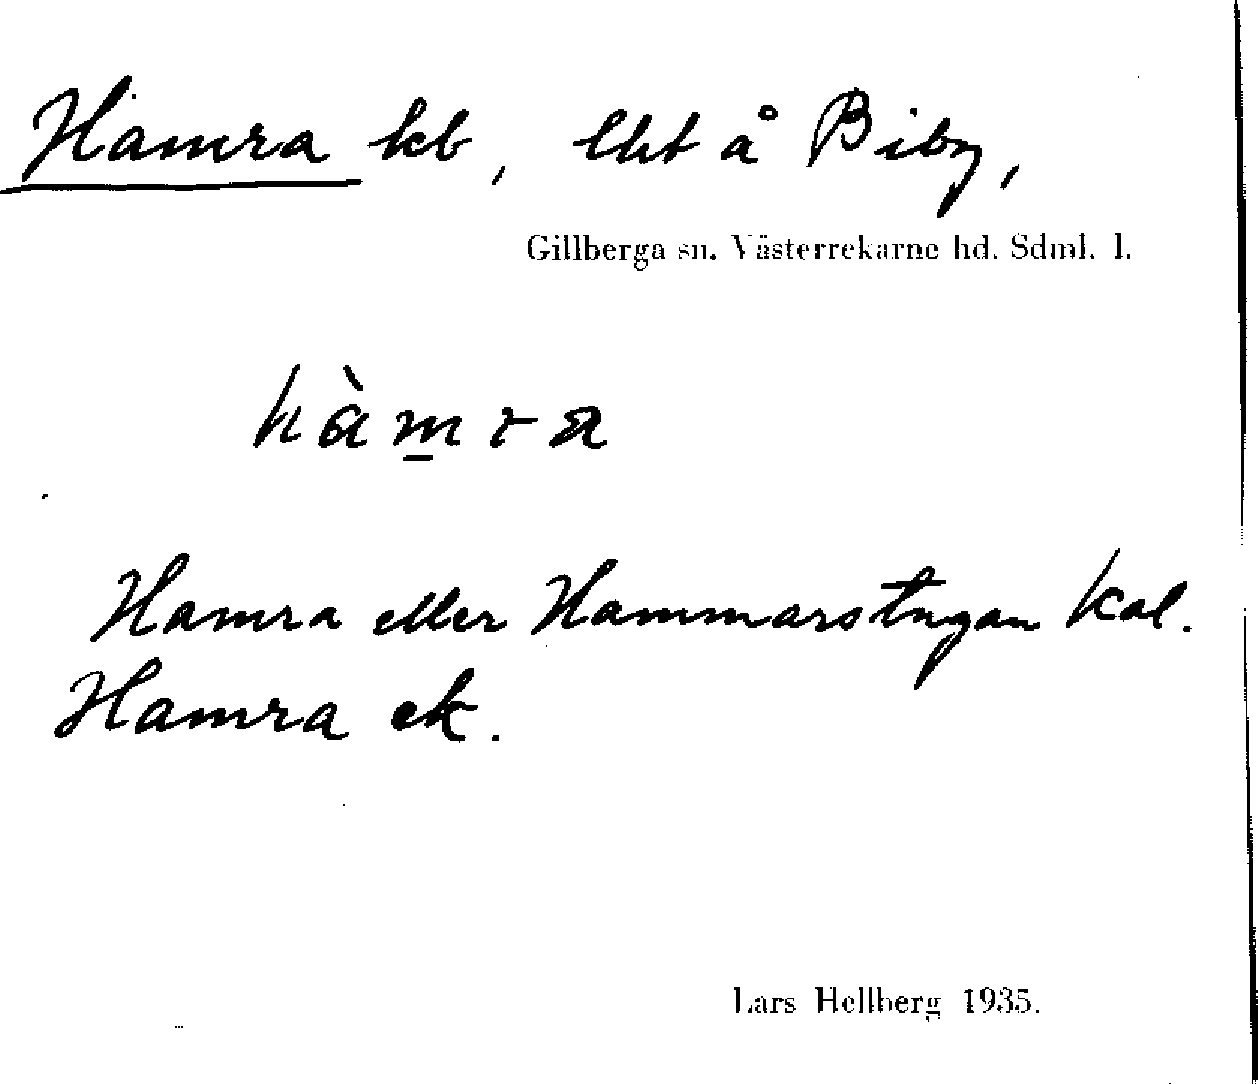 Hamra kb, lht å Biby,
Gillberga sn. Västerrekarne hd. Sdml. l.
hàm̲ra
Hamra eller Hammarstugan Kal.
Hamra ek.
Lars Hellberg 1935.